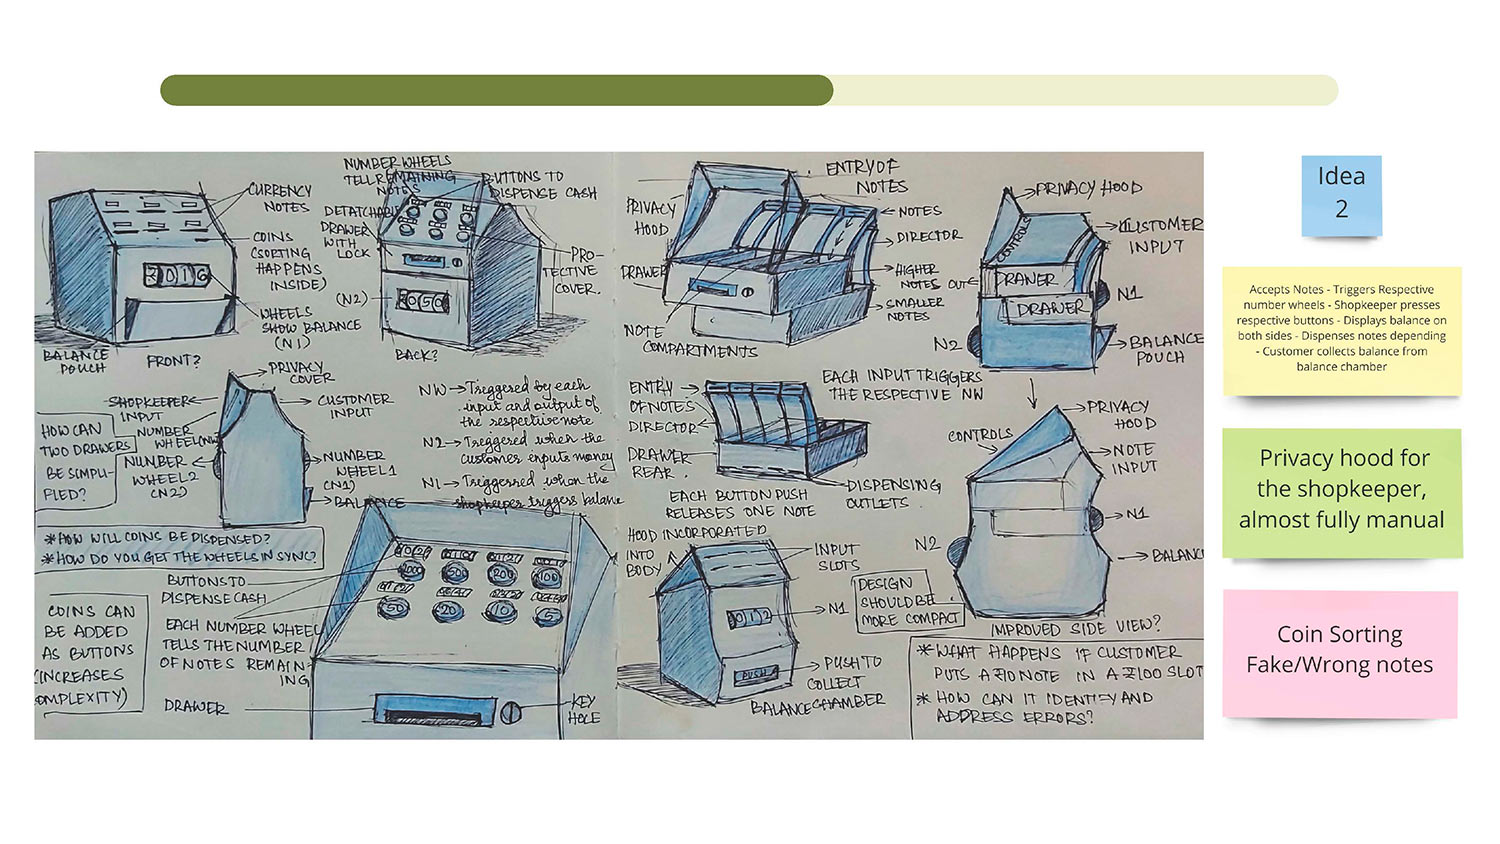 CURRENCY
NOTES
COINS
(SORTING
HAPPENS
INSIDE)
WHEELS
SHOW BALANCE
(N1)
BALANCE
POUCH
FRONT?
NUMBER WHEELS
TELL REMAINING
NOTES
BUTTONS TO
DISPENSE CASH
DETATCHABLE
DRAWER
WITH
LOCK
PRO-
TECTIVE
COVER.
(N2)
050
BACK?
PRIVACY
COVER
SHOPKEEPER
INPUT
CUSTOMER
INPUT
NUMBER
WHEEL(NW)
NUMBER
WHEEL2
(N2)
NUMBER
WHEEL1
(N1)
BALANCE
HOW CAN
TWO DRAWERS
BE SIMPLI-
FIED?
NW → Treggered by each
input and output of
the respective note
N2 → Treggered when the
customer enputs money
N1 → Treggerred when the
shopkeeper treggers balance
* HOW WILL COINS BE DISPENSED?
* HOW DO YOU GET THE WHEELS IN SYNC?
BUTTONS TO
DISPENSE CASH
EACH NUMBER WHEEL
TELLS THE NUMBER
OF NOTES REMAIN-
ING
COINS CAN
BE ADDED
AS BUTTONS
(INCREASES
COMPLEXITY)
500
200
100
50
20
10
5
DRAWER
KEY
HOLE
ENTRY OF
NOTES
PRIVACY
HOOD
NOTES
DIRECTOR
HIGHER
NOTES OUT
SMALLER
NOTES
DRAWER
NOTE
COMPARTMENTS
PRIVACY HOOD
CONTROLS
CUSTOMER
INPUT
DRAWER
DRAWER
N1
N2
BALANCE
POUCH
ENTRY
OF NOTES
DIRECTOR
DRAWER
REAR
EACH INPUT TRIGGERS
THE RESPECTIVE NW
DISPENSING
OUTLETS
EACH BUTTON PUSH
RELEASES ONE NOTE
CONTROLS
PRIVACY
HOOD
NOTE
INPUT
N1
N2
BALANCE
IMPROVED SIDE VIEW?
HOOD INCORPORATED
INTO
BODY
INPUT
SLOTS
012
N1
PUSH
PUSH TO
COLLECT
BALANCE CHAMBER
DESIGN
SHOULD BE
MORE COMPACT
* WHAT HAPPENS IF CUSTOMER
PUTS A ₹10 NOTE IN A ₹100 SLOT
* HOW CAN IT IDENTIFY AND
ADDRESS ERRORS?
Idea
2
Accepts Notes - Triggers Respective
number wheels - Shopkeeper presses
respective buttons - Displays balance on
both sides - Dispenses notes depending
- Customer collects balance from
balance chamber
Privacy hood for
the shopkeeper,
almost fully manual
Coin Sorting
Fake/Wrong notes